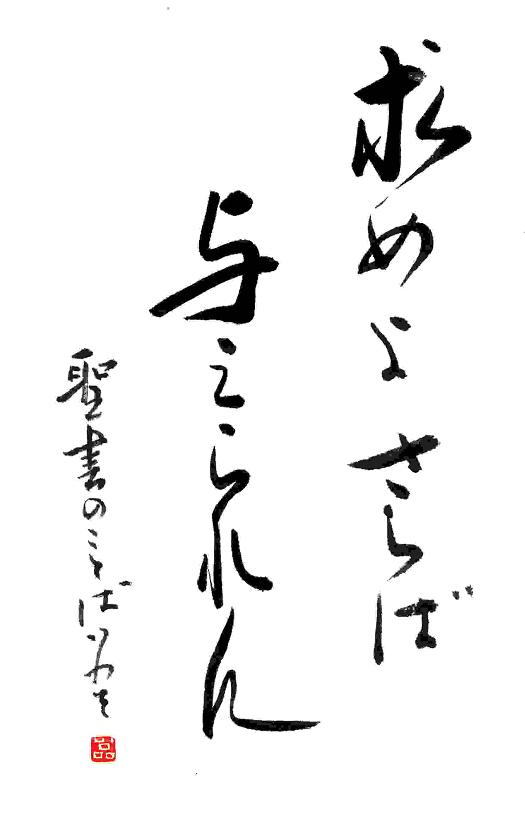 求めよさらば
与えられん
聖書のことば